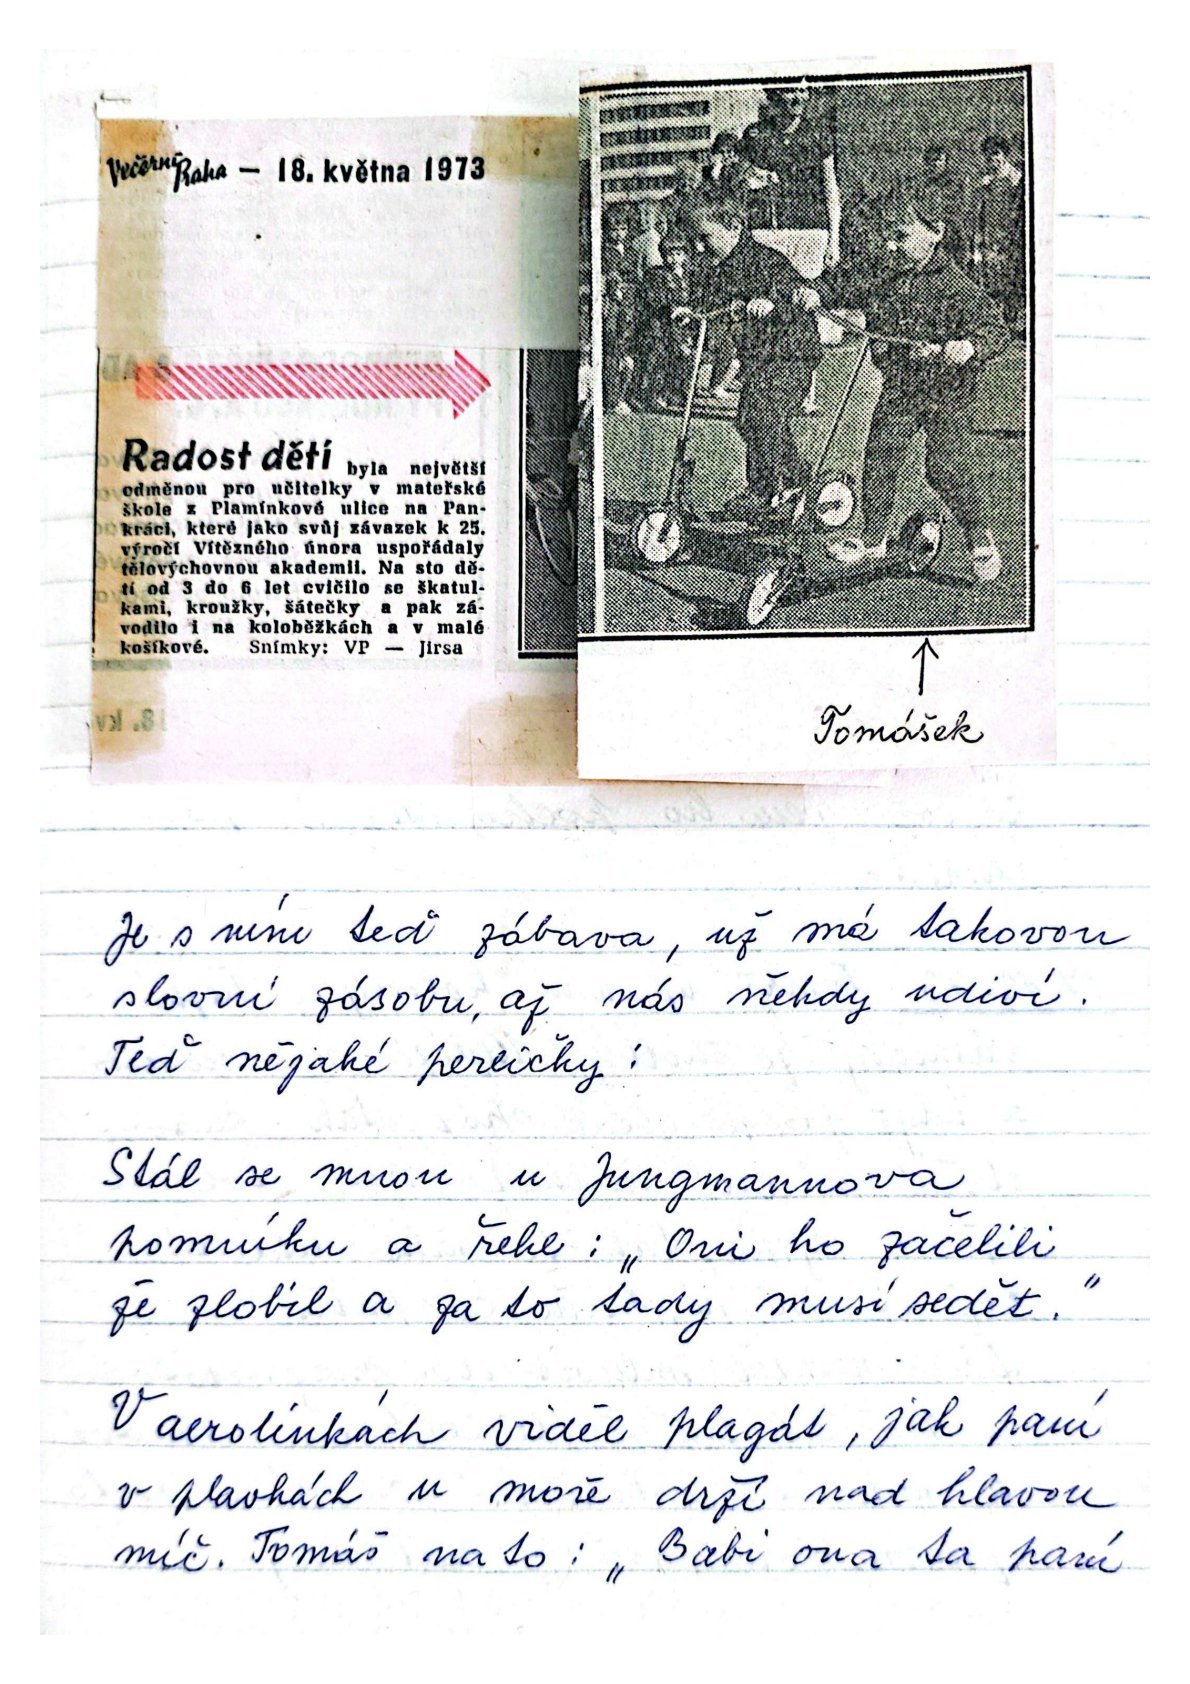 Večerní Praha — 18. května 1973
Radost dětí byla největší
odměnou pro učitelky v mateřské
škole z Plamínkové ulice na Pan-
kráci, které jako svůj závazek k 25.
výročí Vítězného února uspořádaly
tělovýchovnou akademii. Na sto dě-
tí od 3 do 6 let cvičilo se škatul-
kami, kroužky, šátečky a pak zá-
vodilo i na koloběžkách a v malé
košíkové. Snímky: VP — Jirsa
Tomášek
Je s ním teď zábava, už má takovou
slovní zásobu, až nás někdy udiví.
Teď nějaké perličky:
Stál se mnou u Jungmannova
pomníku a řekl: „Oni ho začelili
že zlobil a za to tady musí sedět."
V aerolinkách viděl plagát, jak paní
v plavkách u moře drží nad hlavou
míč. Tomáš na to: „Babi ona ta paní